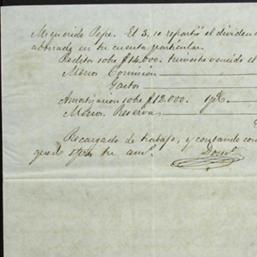 Mi querido Pepe. El 3, se repartió el dividen
abonado en tu cuenta particular.
Reditos sobre $14.000. trimestre vencido el
Menos Comisión
Gastos
Amortizacion sobre $12.000.
Menos Reserva
Recargado de trabajo, y contando con
tu am.º